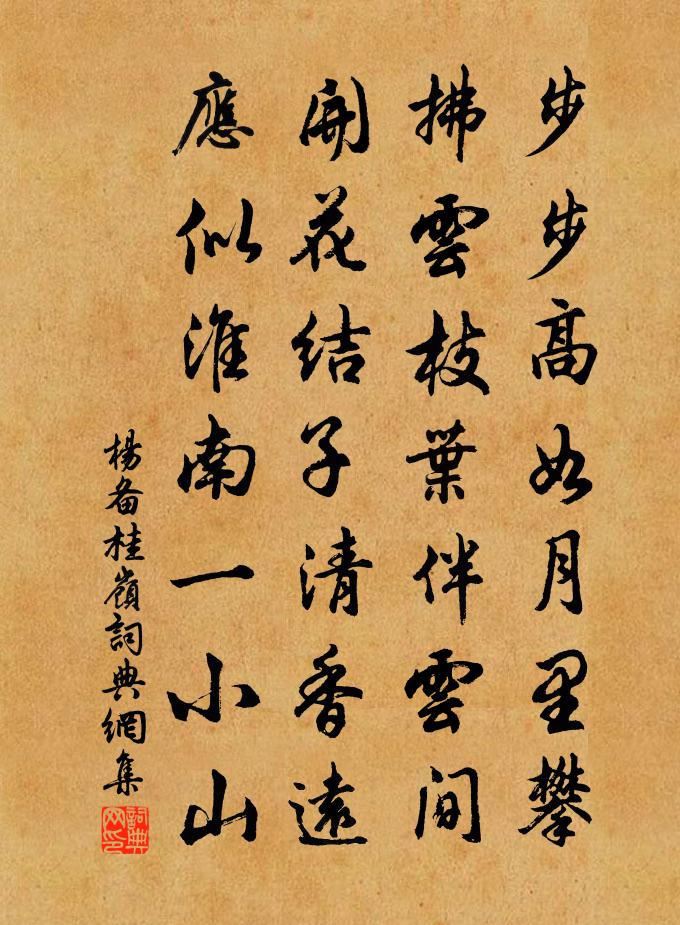 步步高如月里攀
拂雲枝葉伴雲間
開花結子清香遠
應似淮南一小山
楊备桂嶺詞典網集
詞典网印